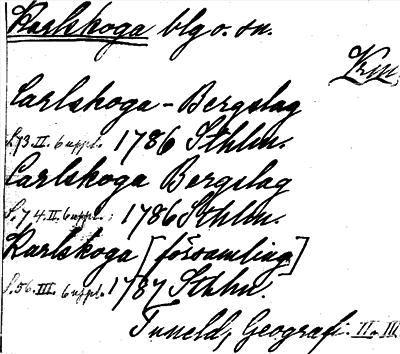 Karlskoga blg o. sn.
Krm.
Carlskoga-Bergslag
S. 73. II. 6 uppl. 1786 Sthlm.
Carlskoga Bergslag
S. 74. II. 6 uppl. 1786 Sthlm.
Karlskoga [församling]
S. 56. III. 6 uppl. 1787 Sthlm.
Tuneld, Geografi. II o. III